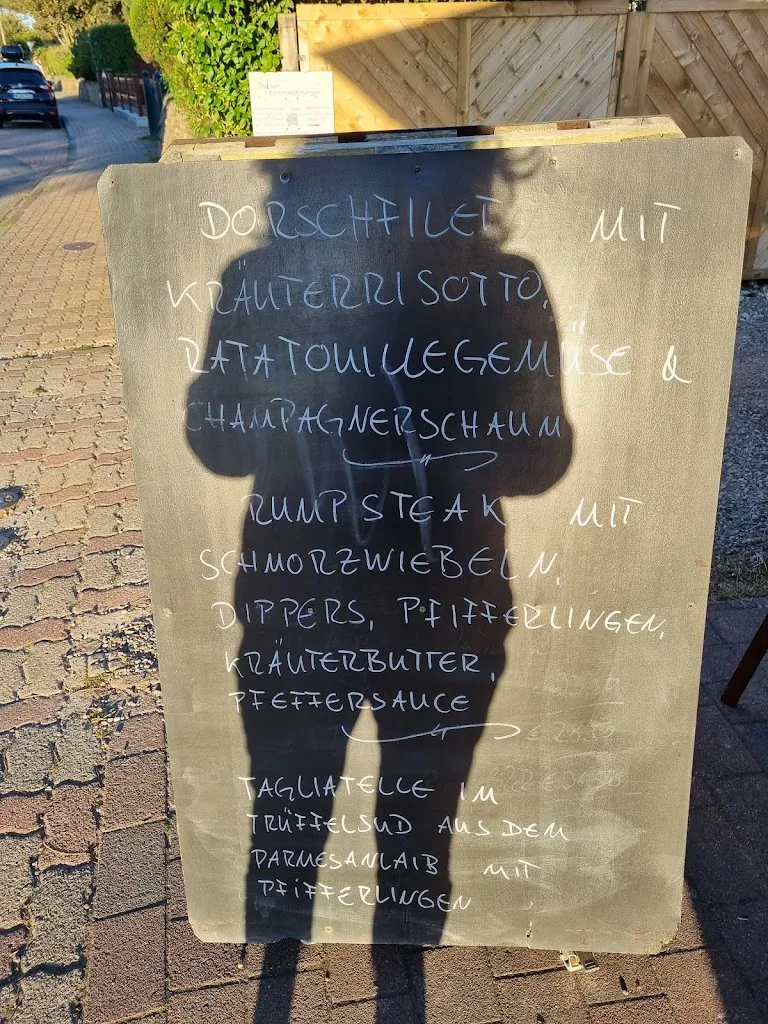 DORSCHFILET MIT
KRÄUTERRISOTTO,
RATATOUILLEGEMÜSE &
CHAMPAGNERSCHAUM
RUMPSTEAK MIT
SCHMORZWIEBELN,
DIPPERS, PFIFFERLINGEN,
KRÄUTERBUTTER,
PFEFFERSAUCE
TAGLIATELLE IM
TRÜFFELSUD AUS DEM
PARMESANLAIB MIT
PFIFFERLINGEN